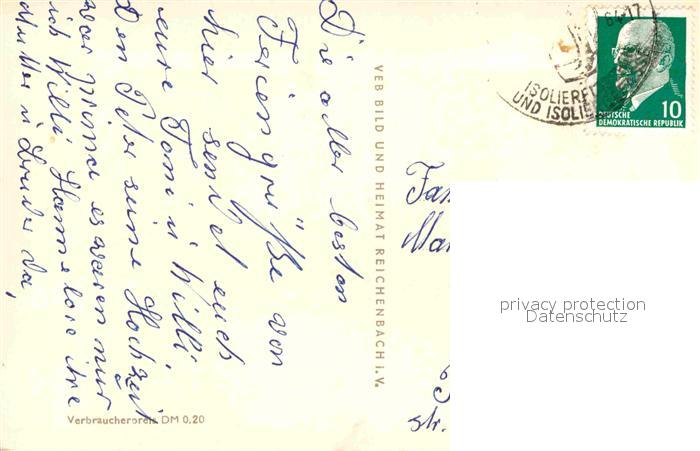 Die aller besten
Ferien grüße von
hier sendet euch
eure Toni u Willi,
Den Peter seine Hochzeit
war prima es waren nur
ich Willi Hannelore ihre
Mutter u Bruder da,
VEB BILD UND HEIMAT REICHENBACH i. V.
Verbraucherpreis DM 0,20
64-17
ISOLIER
UND ISOLI
10
DEUTSCHE
DEMOKRATISCHE REPUBLIK
Fam
str.
privacy protection
Datenschutz